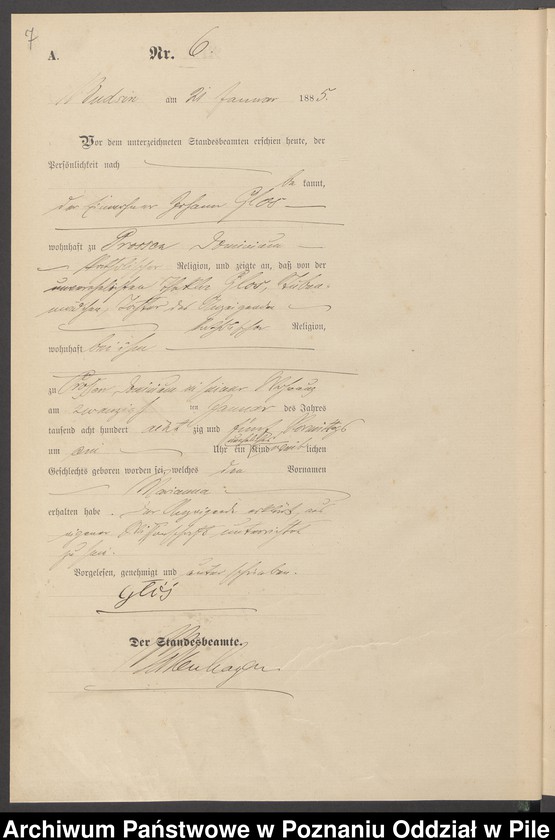 7
A.
Nr. 6.
Budsin am 21 Januar 1885.
Vor dem unterzeichneten Standesbeamten erschien heute, der
Persönlichkeit nach
be kannt,
der Einwohner Johann Glos
wohnhaft zu Prossen Dominium
katholischer Religion, und zeigte an, daß von der
unverehelichten Glos,
Tochter des Anzeigenden
katholischer Religion,
wohnhaft bei ihm
zu Prossen Dominium in seiner Wohnung
am zwanzigsten Januar des Jahres
tausend acht hundert acht zig und fünf Vormittags
um ein Uhr ein Kind weiblichen
Geschlechts geboren worden sei, welches den Vornamen
Marianna
erhalten habe. Der Anzeigende erklärt, aus
eigener Wissenschaft unterrichtet
zu sein.
Vorgelesen, genehmigt und unterschrieben.
Glos
Der Standesbeamte.
Archiwum Państwowe w Poznaniu Oddział w Pile